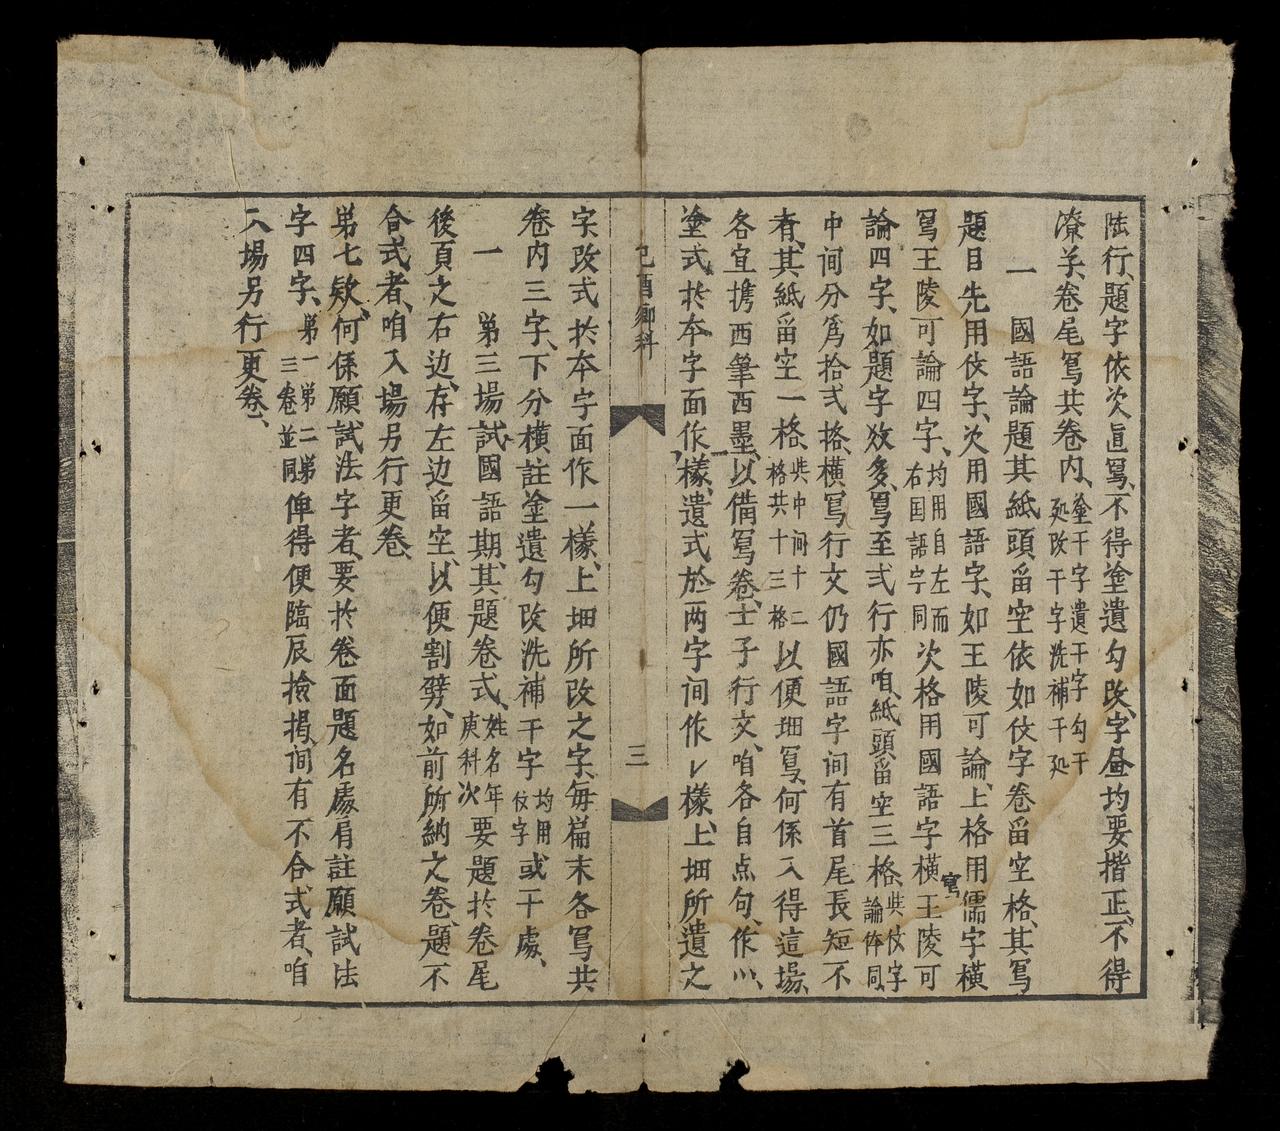 陆行、題字依次眞寫、不得塗遺勾改、字畫均要揩正、不得
潦草、卷尾寫共卷内、塗干字遺干字勾干処改干字洗補干処
一國語論題其紙頭留空依如仗字卷留空格、其寫
題目先用仗字、次用國語字、如王陵可論、上格用儒字橫
寫王陵可論四字、均用自左而右国語字同次格用國語字橫寫王陵可
論四字、如題字效多、寫至弍行亦咱、紙頭留空三格、與仗字論体同、
中间分爲拾弍格、橫寫行文仍國語字间有首尾長短不
斉、其紙留空一格、與中间十二格共十三格以便細寫、何係入得這場、
各宜携西筆西墨、以備寫卷、士子行文、咱各自点句、作〃、
塗式於本字面作、樣、遺式於两字间作𠄌樣、上細所遺之
己酉鄉科 三
字、改式於本字面作一樣、上細所改之字、每篇末各寫共
卷内三字、下分横註塗遺勾改洗補干字均用仗字或干處、
一第三場試國語期、其題卷式、姓名年庚科次要題於卷尾
後頁之右边、存左边留空、以便割劈、如前所納之卷、題不
合式者、咱入場另行更卷、
第七欵、何係願試法字者、要於卷面題名處肩註願試法
字四字、第一第二第三卷並同俾得便臨辰撿揭、间有不合式者、咱
入場另行更卷、